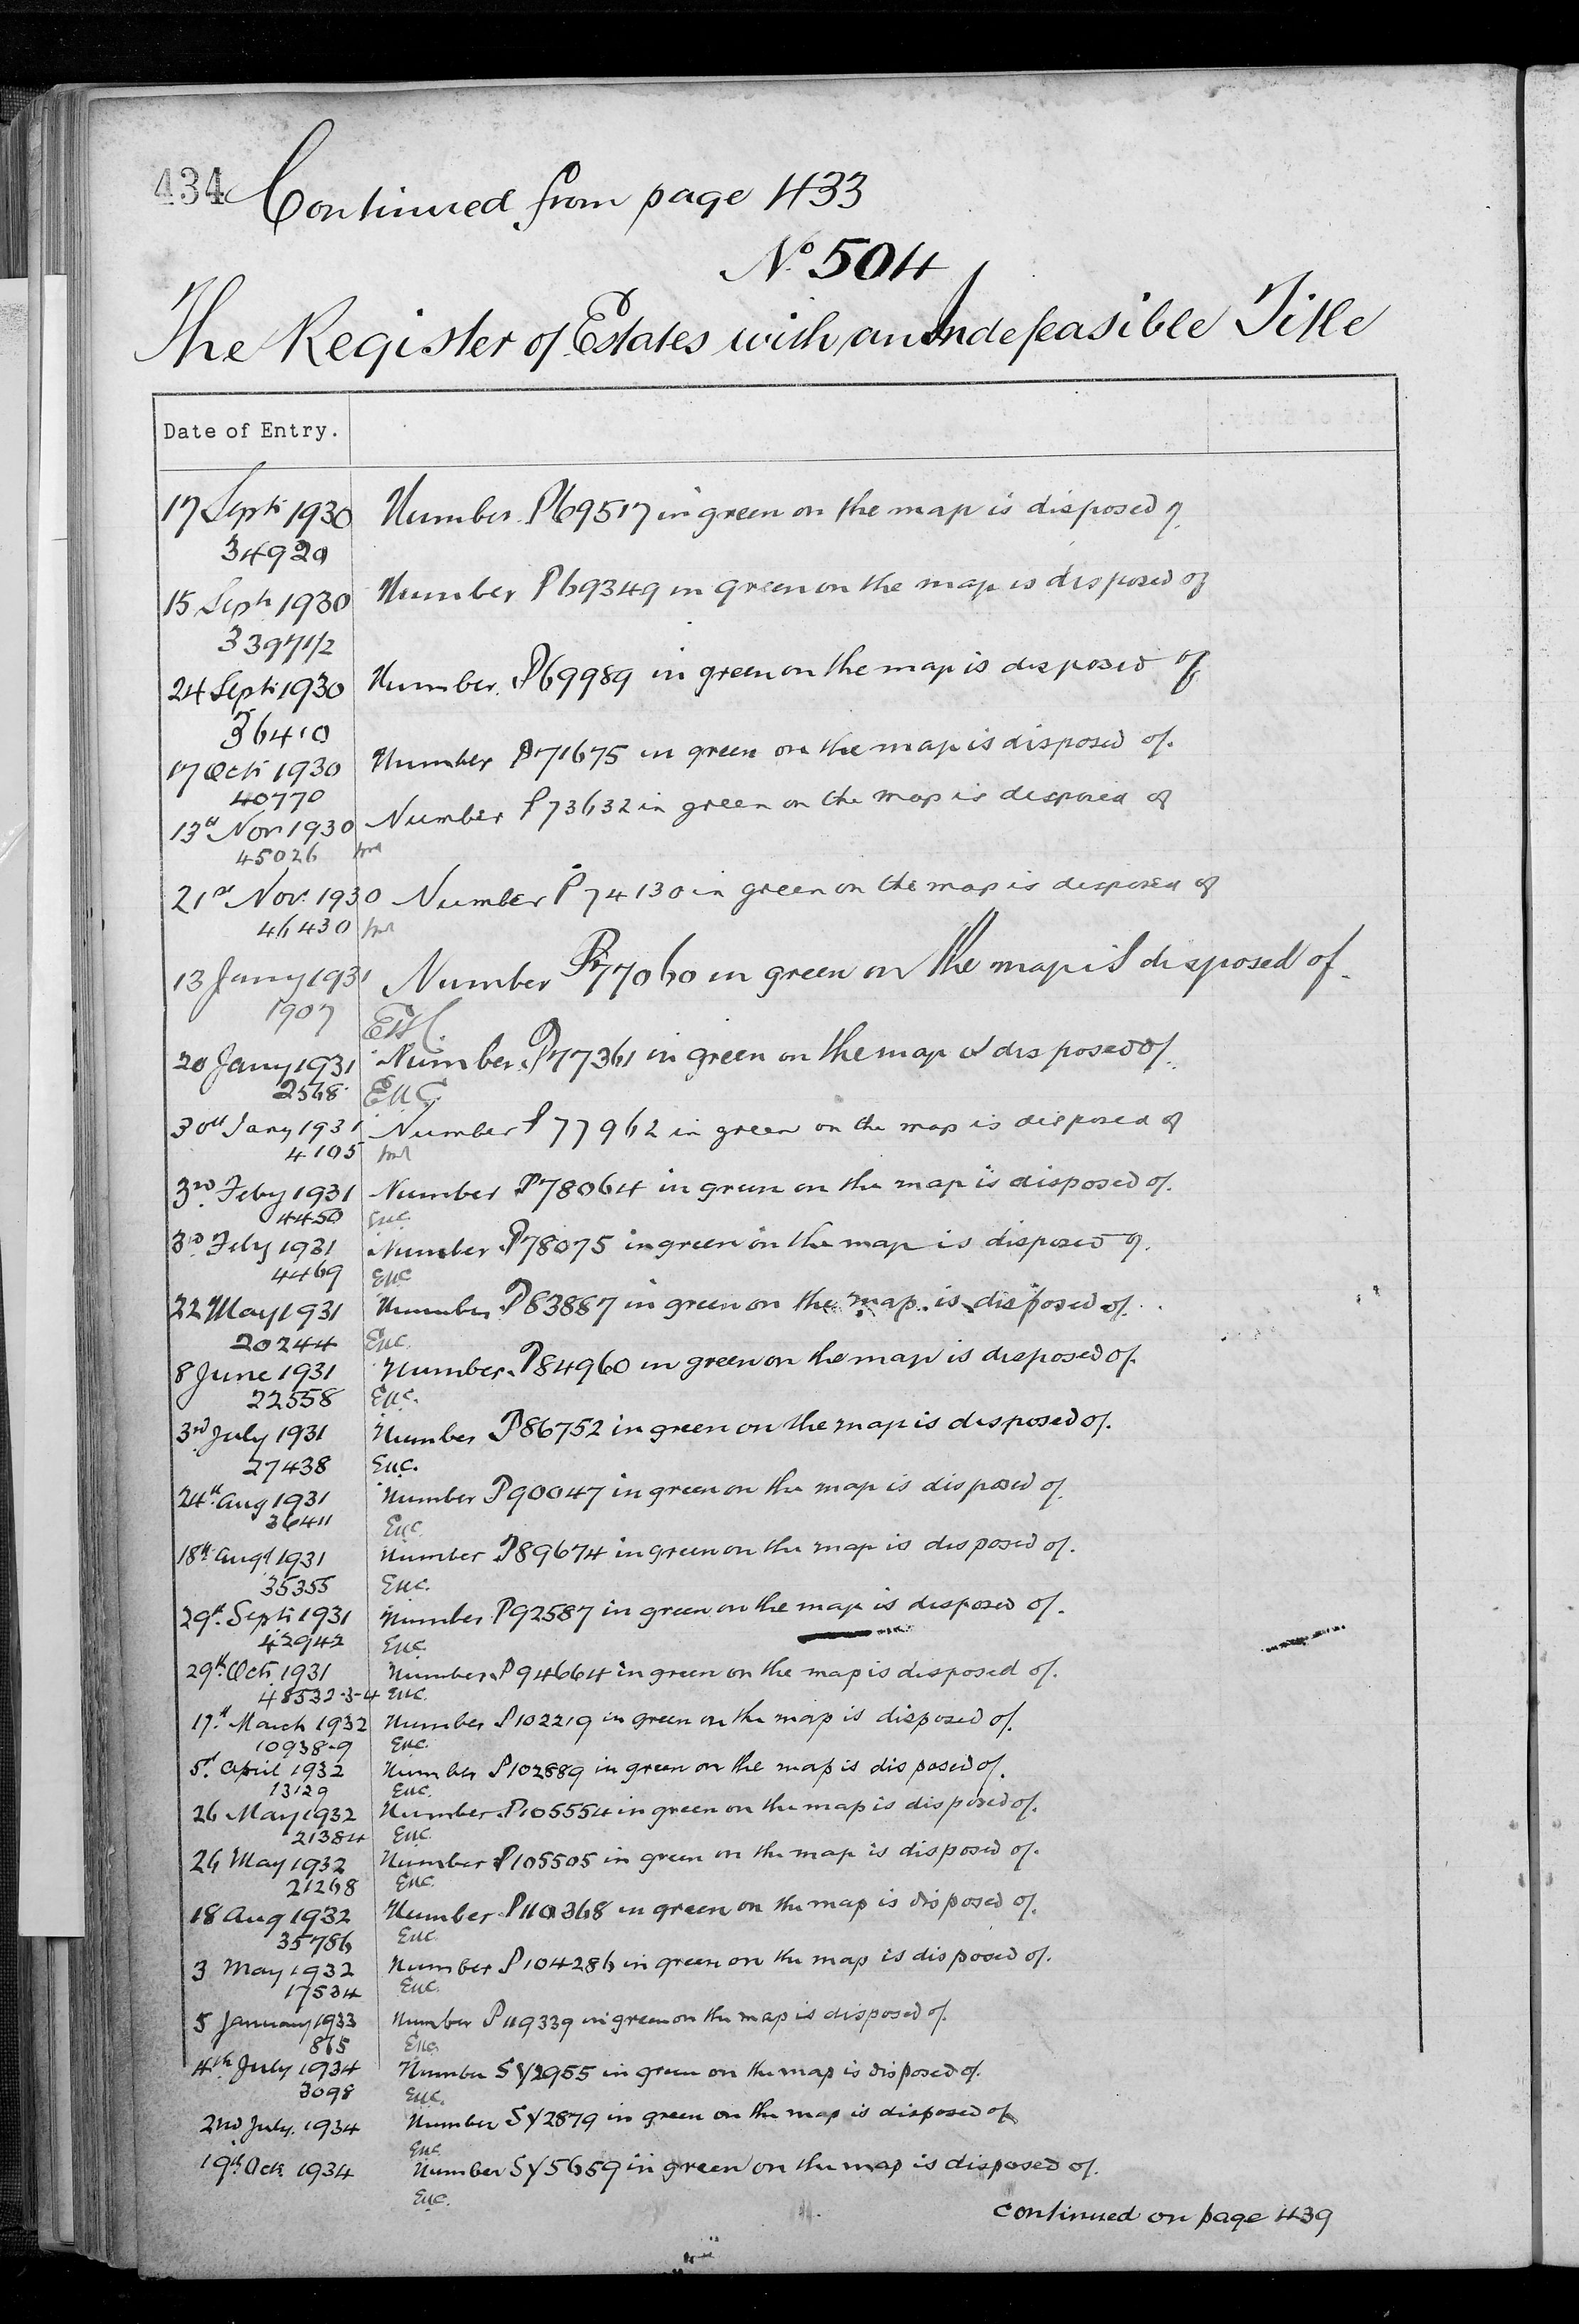 434 Continued from page 433
No. 504
The Register of Estates with an Indefeasible Title
Date of Entry.
17 Sept 1930 Number P69517 in green on the map is disposed of
34920
15 Sept 1930 Number P69349 in green on the map is disposed of
33971/2
24 Sept 1930 Number P69989 in green on the map is disposed of
36410
17 Oct 1930 Number P71675 in green on the map is disposed of.
40770
13th Nov 1930 Number P73632 in green on the map is disposed of
45026
21st Nov. 1930 Number P74130 in green on the map is disposed of
46430
13 Jany 1931 Number P77060 in green on the map is disposed of.
1907
20 Jany 1931 Number P77361 in green on the map is disposed of.
2568 Euc.
30th Jany 1931 Number P77962 in green on the map is disposed of
4105
3rd Feby 1931 Number P78064 in green on the map is disposed of.
4450 Euc.
3rd Feby 1931 Number P78075 in green on the map is disposed of.
4469 Euc
22 May 1931 Number P83887 in green on the map is disposed of.
20244 Euc.
8 June 1931 Number P84960 in green on the map is disposed of.
22558 Euc.
3rd July 1931 Number P86752 in green on the map is disposed of.
27438 Euc.
24th Aug 1931 Number P90047 in green on the map is disposed of.
36411 Euc.
18th Augt 1931 Number P89674 in green on the map is disposed of.
35355 Euc.
29th Sept 1931 Number P92587 in green on the map is disposed of.
42942 Euc.
29th Oct 1931 Number P94664 in green on the map is disposed of.
48532-3-4 Euc.
17th March 1932 Number P102219 in green on the map is disposed of.
10938-9 Euc.
5th April 1932 Number P102889 in green on the map is disposed of.
13129 Euc.
26 May 1932 Number P105554 in green on the map is disposed of.
21384 Euc.
26 May 1932 Number P105505 in green on the map is disposed of.
21268 Euc.
18 Aug 1932 Number P110368 in green on the map is disposed of.
35786 Euc.
3 May 1932 Number P104286 in green on the map is disposed of.
17534 Euc.
5 January 1933 Number P119339 in green on the map is disposed of.
865 Euc.
4th July 1934 Number SY2955 in green on the map is disposed of.
3098 Euc.
2nd July. 1934 Number SY2879 in green on the map is disposed of
Euc.
19th Oct 1934 Number SY5659 in green on the map is disposed of.
Euc.
continued on page 439